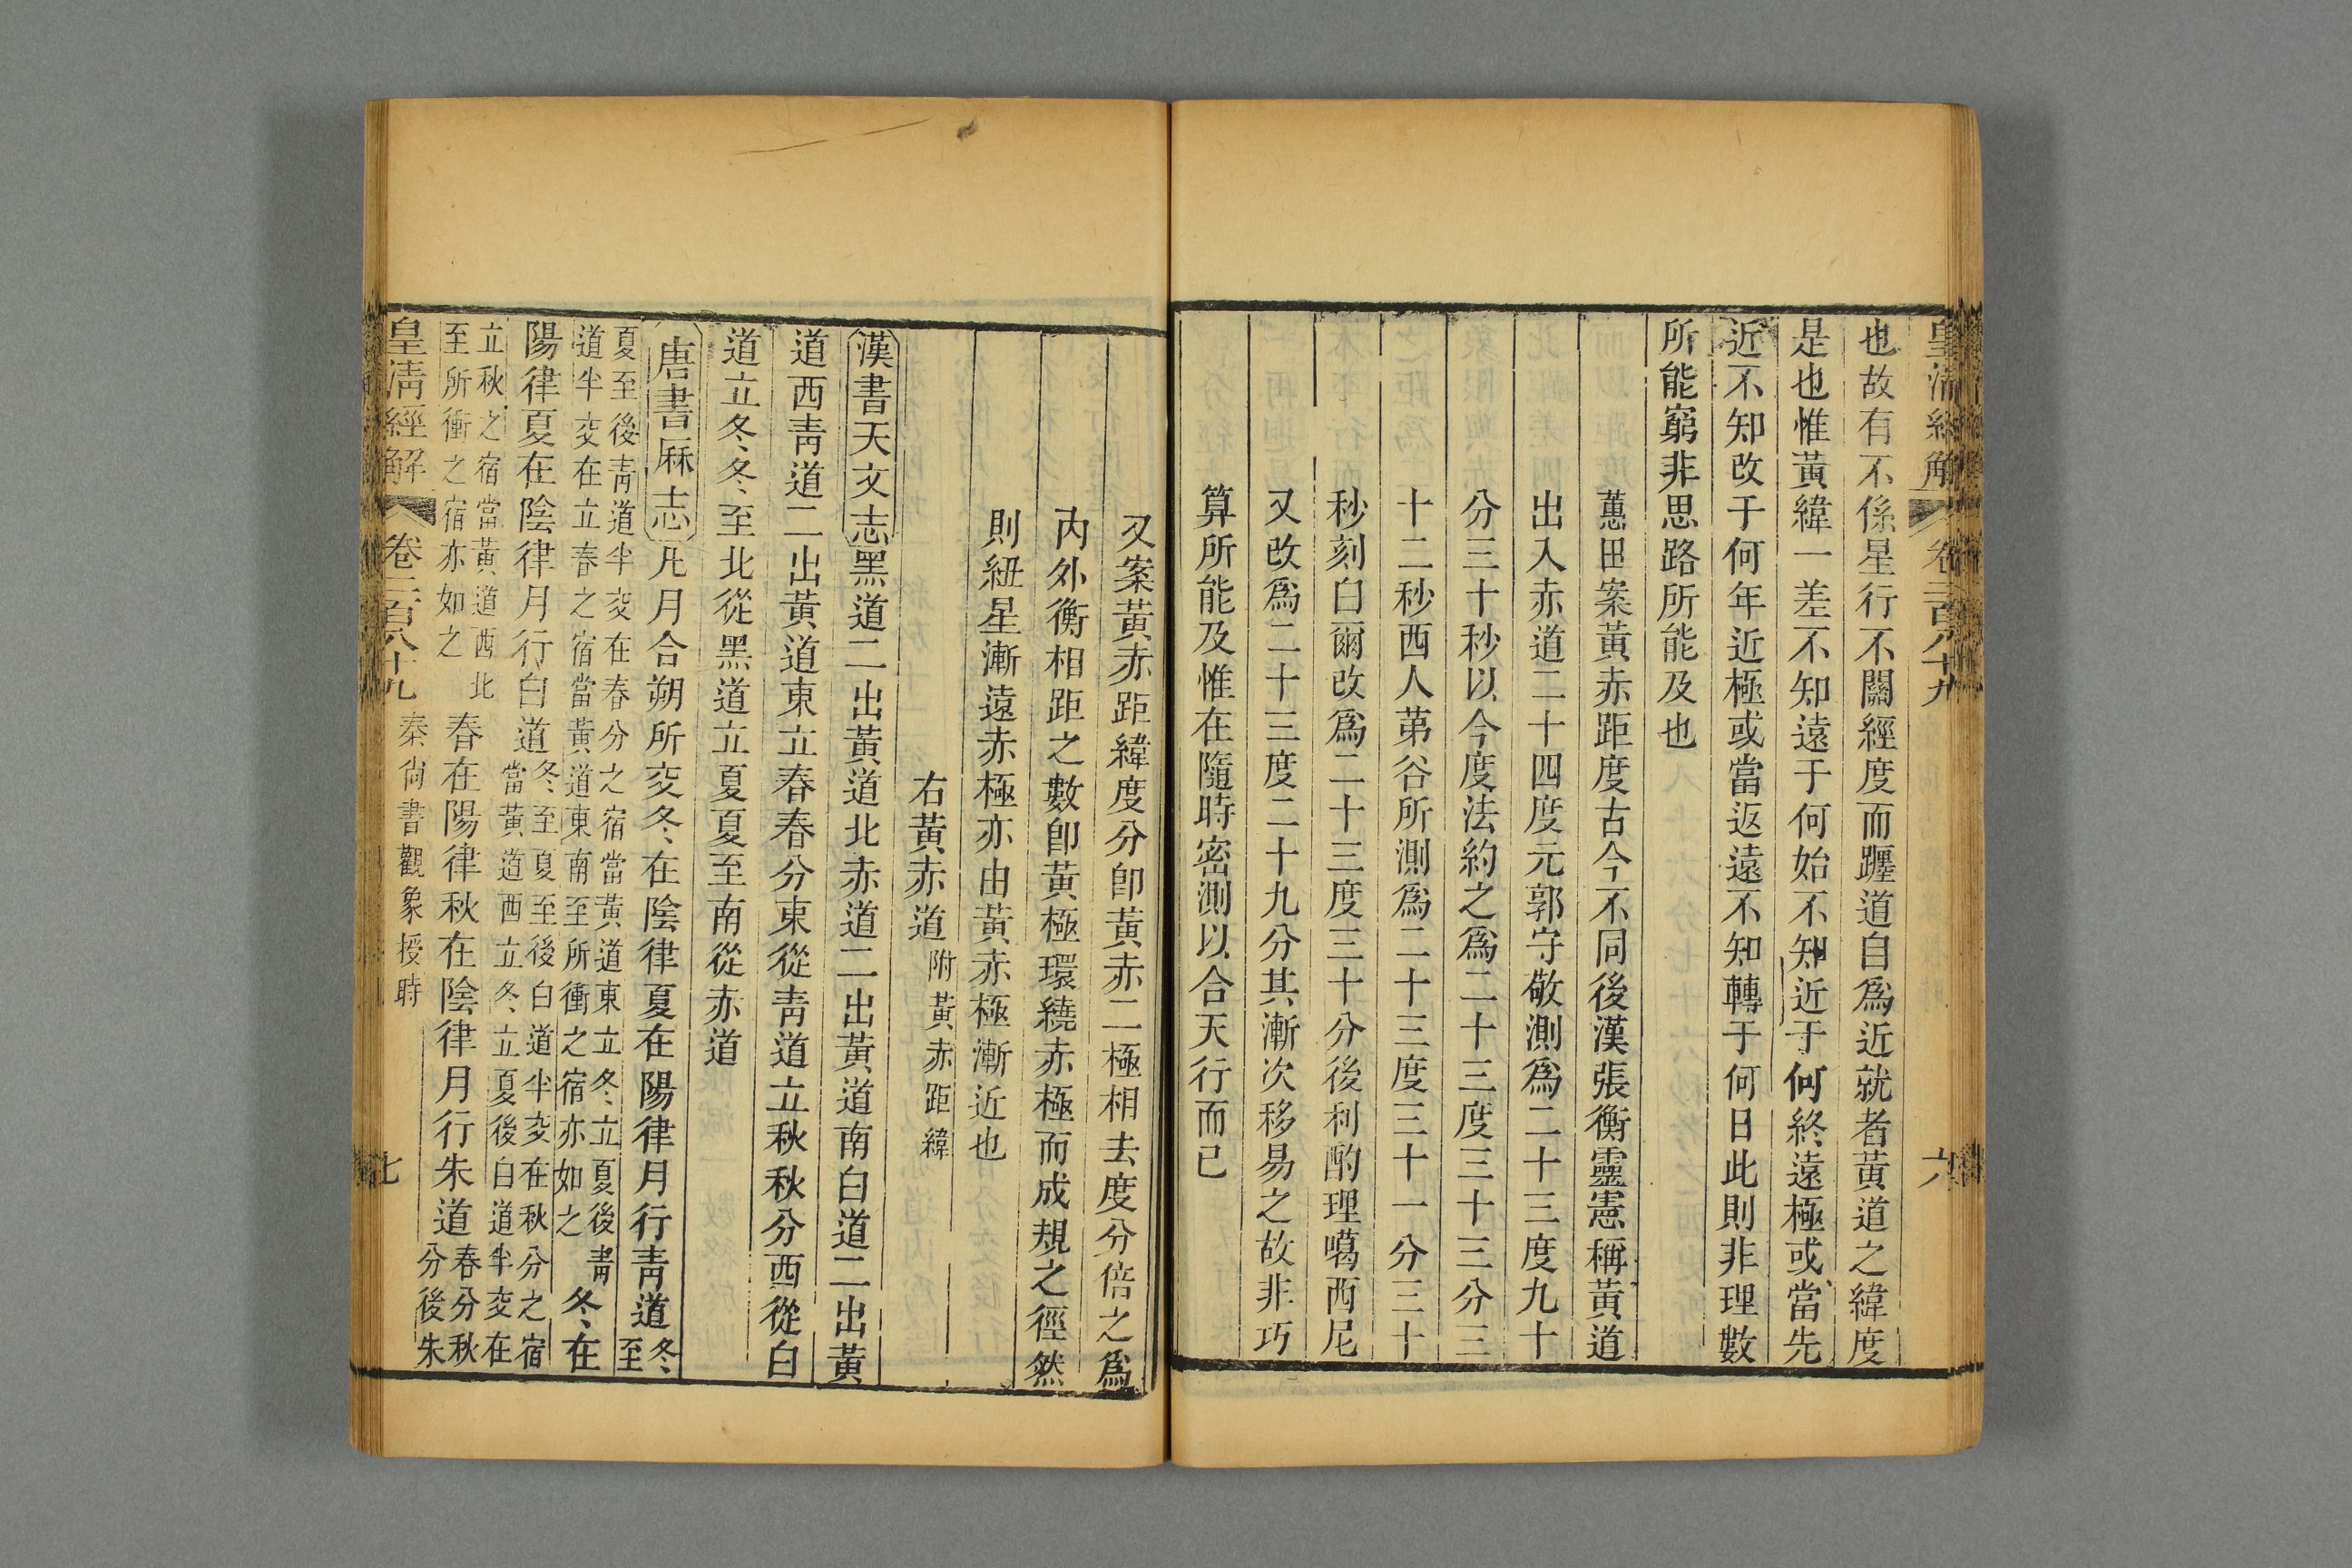 皇清經解 卷二百八十九 六
也故有不係星行不關經度而躔道自爲近就者黃道之緯度
是也惟黃緯一差不知遠于何始不知近于何終遠極或當先
近不知改于何年近極或當返遠不知轉于何日此則非理數
所能窮非思路所能及也
蕙田案黃赤距度古今不同後漢張衡靈憲稱黃道
出入赤道二十四度元郭守敬測爲二十三度九十
分三十秒以今度法約之爲二十三度三十三分三
十二秒西人第谷所測爲二十三度三十一分三十
秒刻白爾改爲二十三度三十分後利酌理噶西尼
又改爲二十三度二十九分其漸次移易之故非巧
算所能及惟在隨時密測以合天行而已
又案黃赤距緯度分卽黃赤二極相去度分倍之爲
內外衡相距之數卽黃極環繞赤極而成規之徑然
則紐星漸遠赤極亦由黃赤極漸近也
右黃赤道附黃赤距緯
漢書天文志黑道二出黃道北赤道二出黃道南白道二出黃
道西靑道二出黃道東立春春分東從靑道立秋秋分西從白
道立冬冬至北從黑道立夏夏至南從赤道
唐書厤志凡月合朔所交冬在陰律夏在陽律月行靑道冬至
夏至後靑道半交在春分之宿當黃道東立冬立夏後靑
道半交在立春之宿當黃道東南至所衝之宿亦如之冬在
陽律夏在陰律月行白道冬至夏至後白道半交在秋分之宿
當黃道西立冬立夏後白道半交在
立秋之宿當黃道西北
至所衝之宿亦如之春在陽律秋在陰律月行朱道春分秋
分後朱
皇清經解 卷二百八十九 秦尙書觀象授時 七